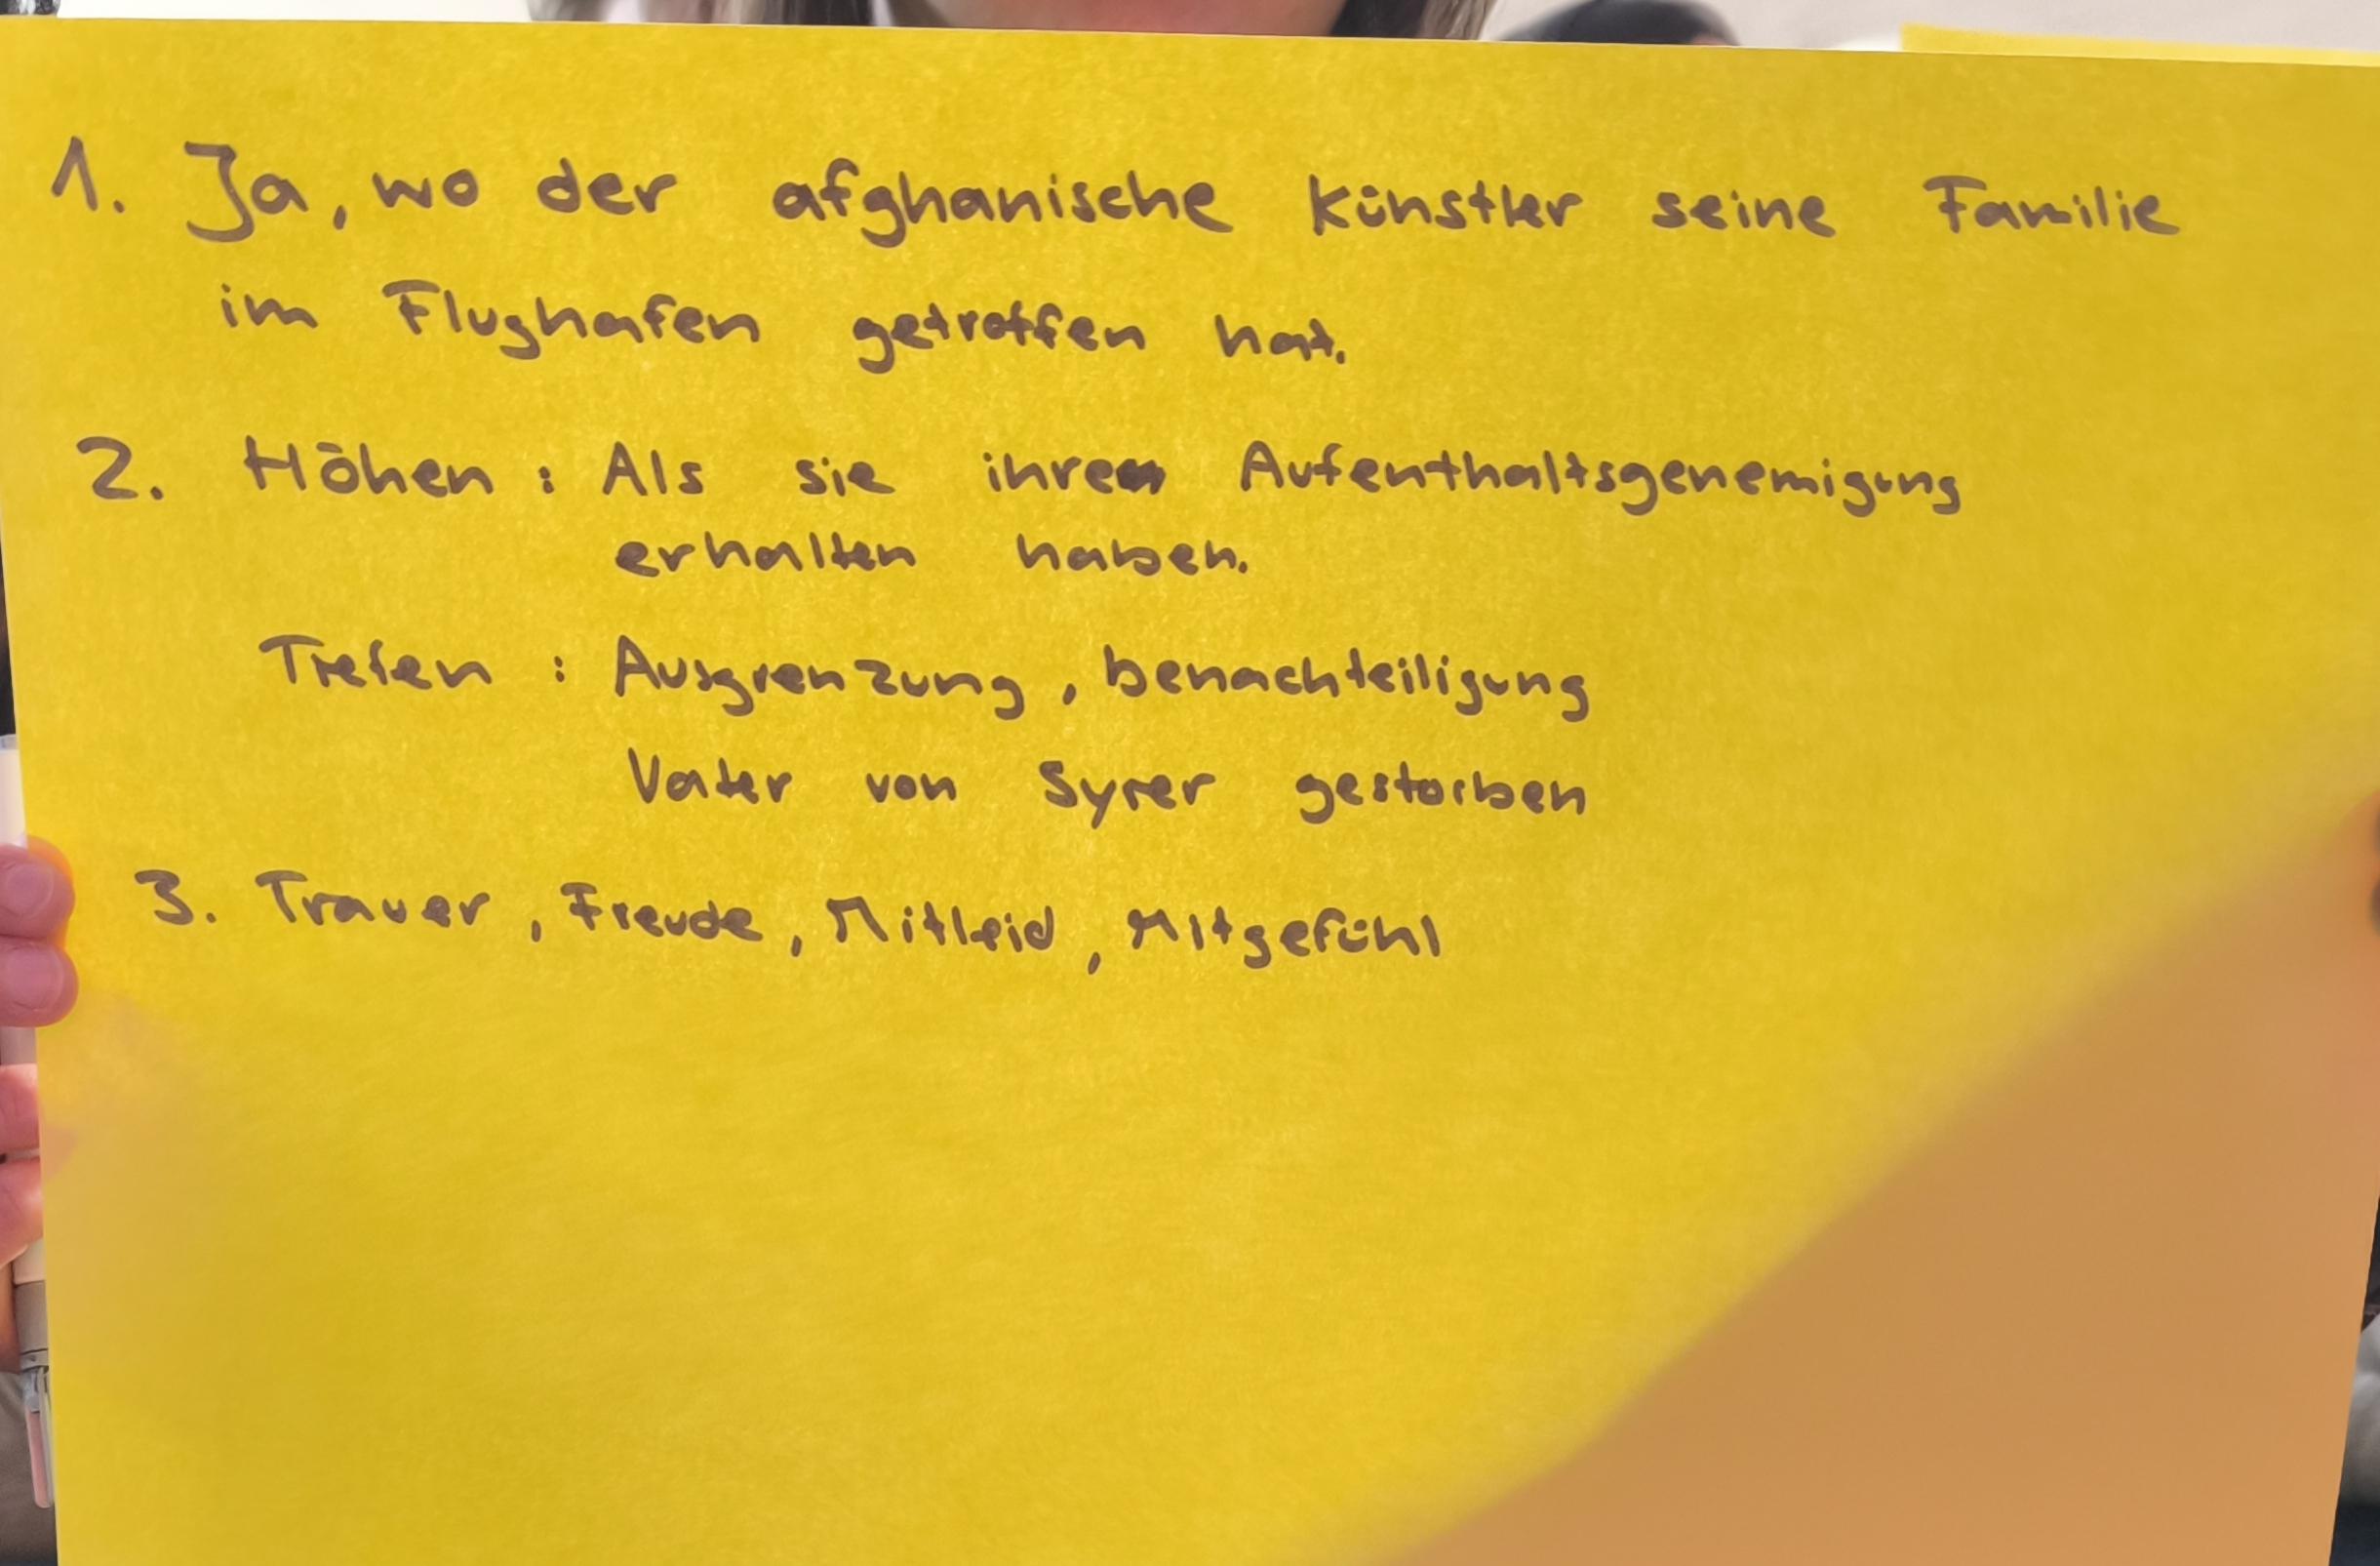 1. Ja, wo der afghanische Künstler seine Familie
im Flughafen getroffen hat.
2. Höhen : Als sie ihre Aufenthaltsgenemigung
erhalten haben.
Tiefen : Ausgrenzung, benachteiligung
Vater von Syrer gestorben
3. Trauer, Freude, Mitleid, Mitgefühl